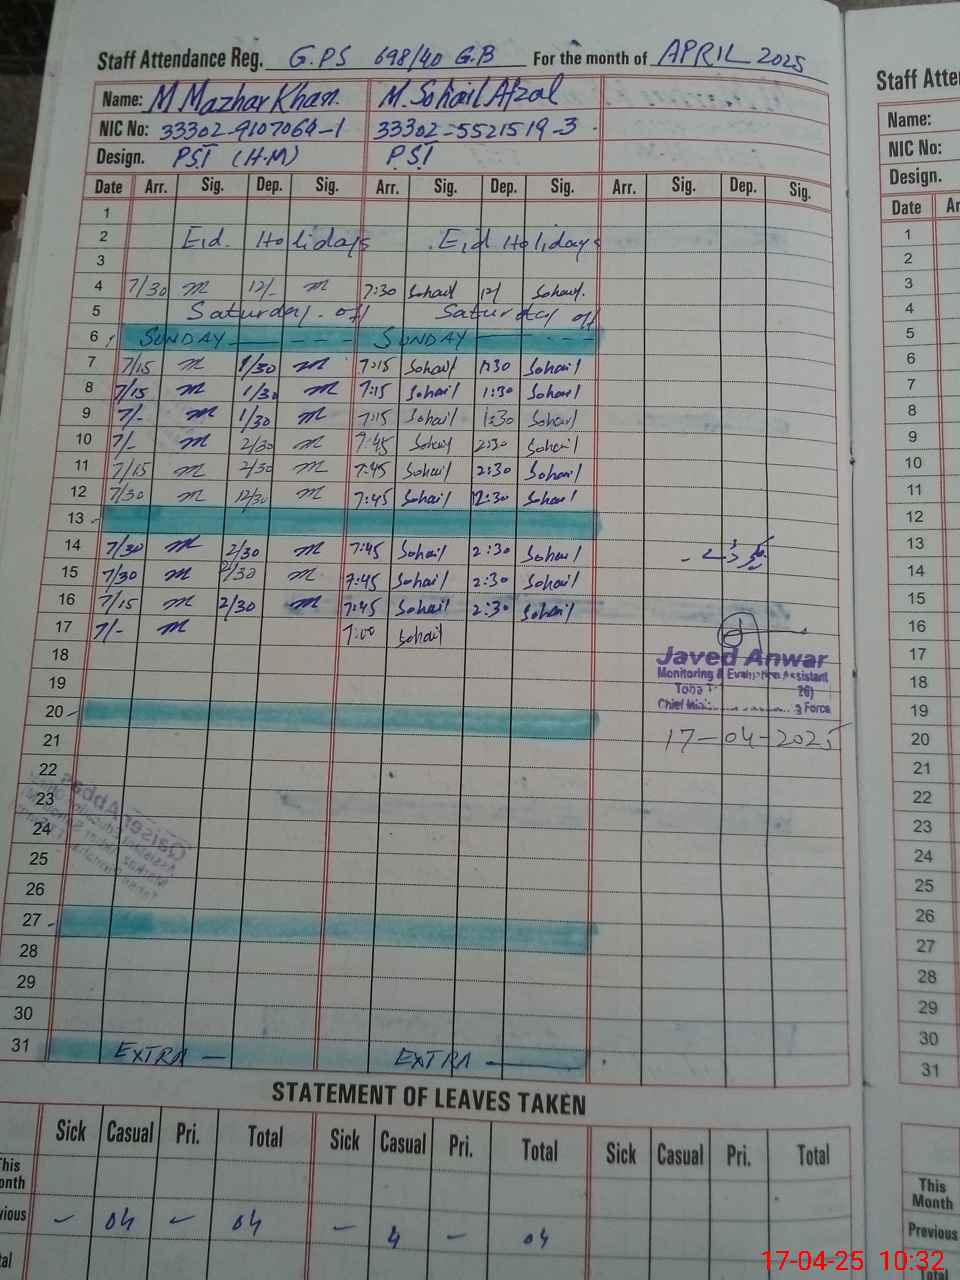 Staff Attendance Reg. G.PS 698/40 G.B For the month of APRIL 2025
Name: M Mazhar Khan. M. Sohail Afzal
NIC No: 33302-9107064-1 33302-5521519-3
Design. PST (H.M) PST
Date Arr. Sig. Dep. Sig. Arr. Sig. Dep. Sig. Arr. Sig. Dep. Sig.
1
2 Eid. Holidays Eid Holidays
3
4 7/30 m 12/- m 7:30 Sohail 12/ Sohail.
5 Saturday off Saturday off
6 SUNDAY SUNDAY
7 7/15 m 1/30 m 7:15 Sohail 1:30 Sohail
8 7/15 m 1/30 m 7:15 Sohail 1:30 Sohail
9 7/- m 1/30 m 7:15 Sohail 1:30 Sohail
10 7/- m 2/30 m 7:45 Sohail 2:30 Sohail
11 7/15 m 2/30 m 7:45 Sohail 2:30 Sohail
12 7/30 m 12/30 m 7:45 Sohail 12:30 Sohail
13
14 7/30 m 2/30 m 7:45 Sohail 2:30 Sohail
15 7/30 m 2/30 m 7:45 Sohail 2:30 Sohail
16 7/15 m 2/30 m 7:45 Sohail 2:30 Sohail
17 7/- m 7:00 Sohail
18
19
20
21
22
23
24
25
26
27
28
29
30
31 EXTRA - EXTRA -
Javed Anwar
Monitoring & Evaluation Assistant
Toba
Chief Force
17-04-2025
Qaiser Abbas
STATEMENT OF LEAVES TAKEN
Sick Casual Pri. Total Sick Casual Pri. Total Sick Casual Pri. Total
This
Month
Previous - 04 - 04 - 4 - 04
Total
Staff Atte
Name:
NIC No:
Design.
Date Ar
1
2
3
4
5
6
7
8
9
10
11
12
13
14
15
16
17
18
19
20
21
22
23
24
25
26
27
28
29
30
31
This
Month
Previous
Total
17-04-25 10:32